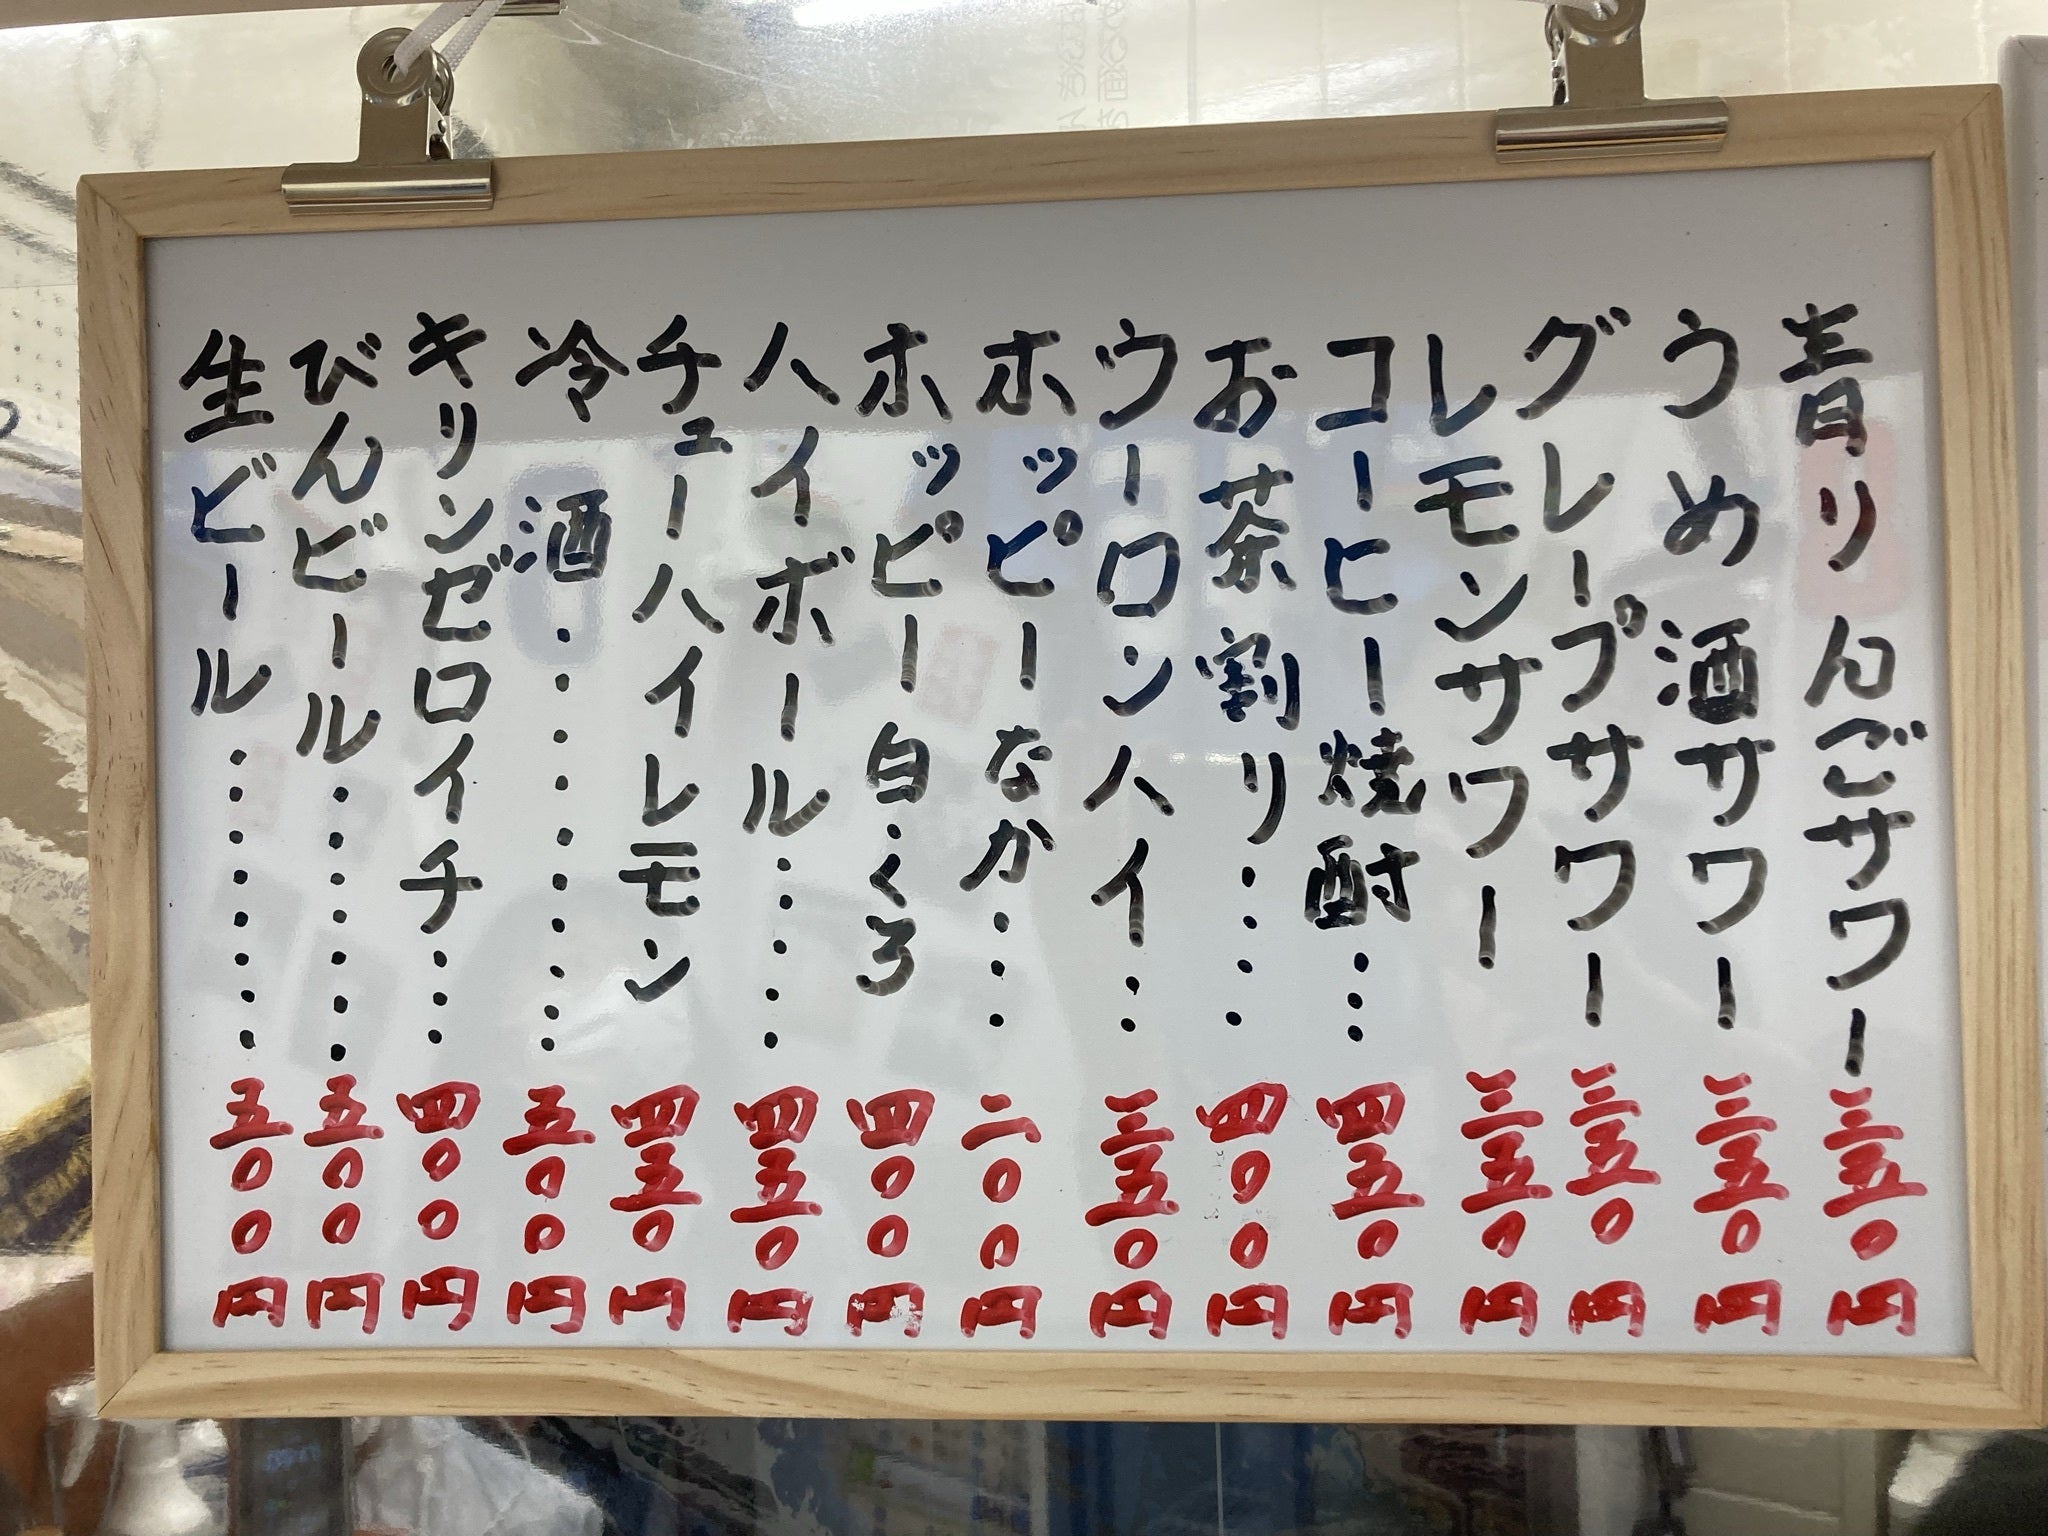 青りんごサワー三五〇円
うめ酒サワー三五〇円
グレープサワー三五〇円
レモンサワー三五〇円
コーヒー焼酎・・・四五〇円
お茶割り・・・・四〇〇円
ウーロンハイ・・三五〇円
ホッピーなか・・・二〇〇円
ホッピー白・くろ四〇〇円
ハイボール・・・・・四五〇円
チューハイレモン四五〇円
冷酒・・・・・・・・五〇〇円
キリンゼロイチ・・・四〇〇円
びんビール・・・・・・・五〇〇円
生ビール・・・・・・・・五〇〇円